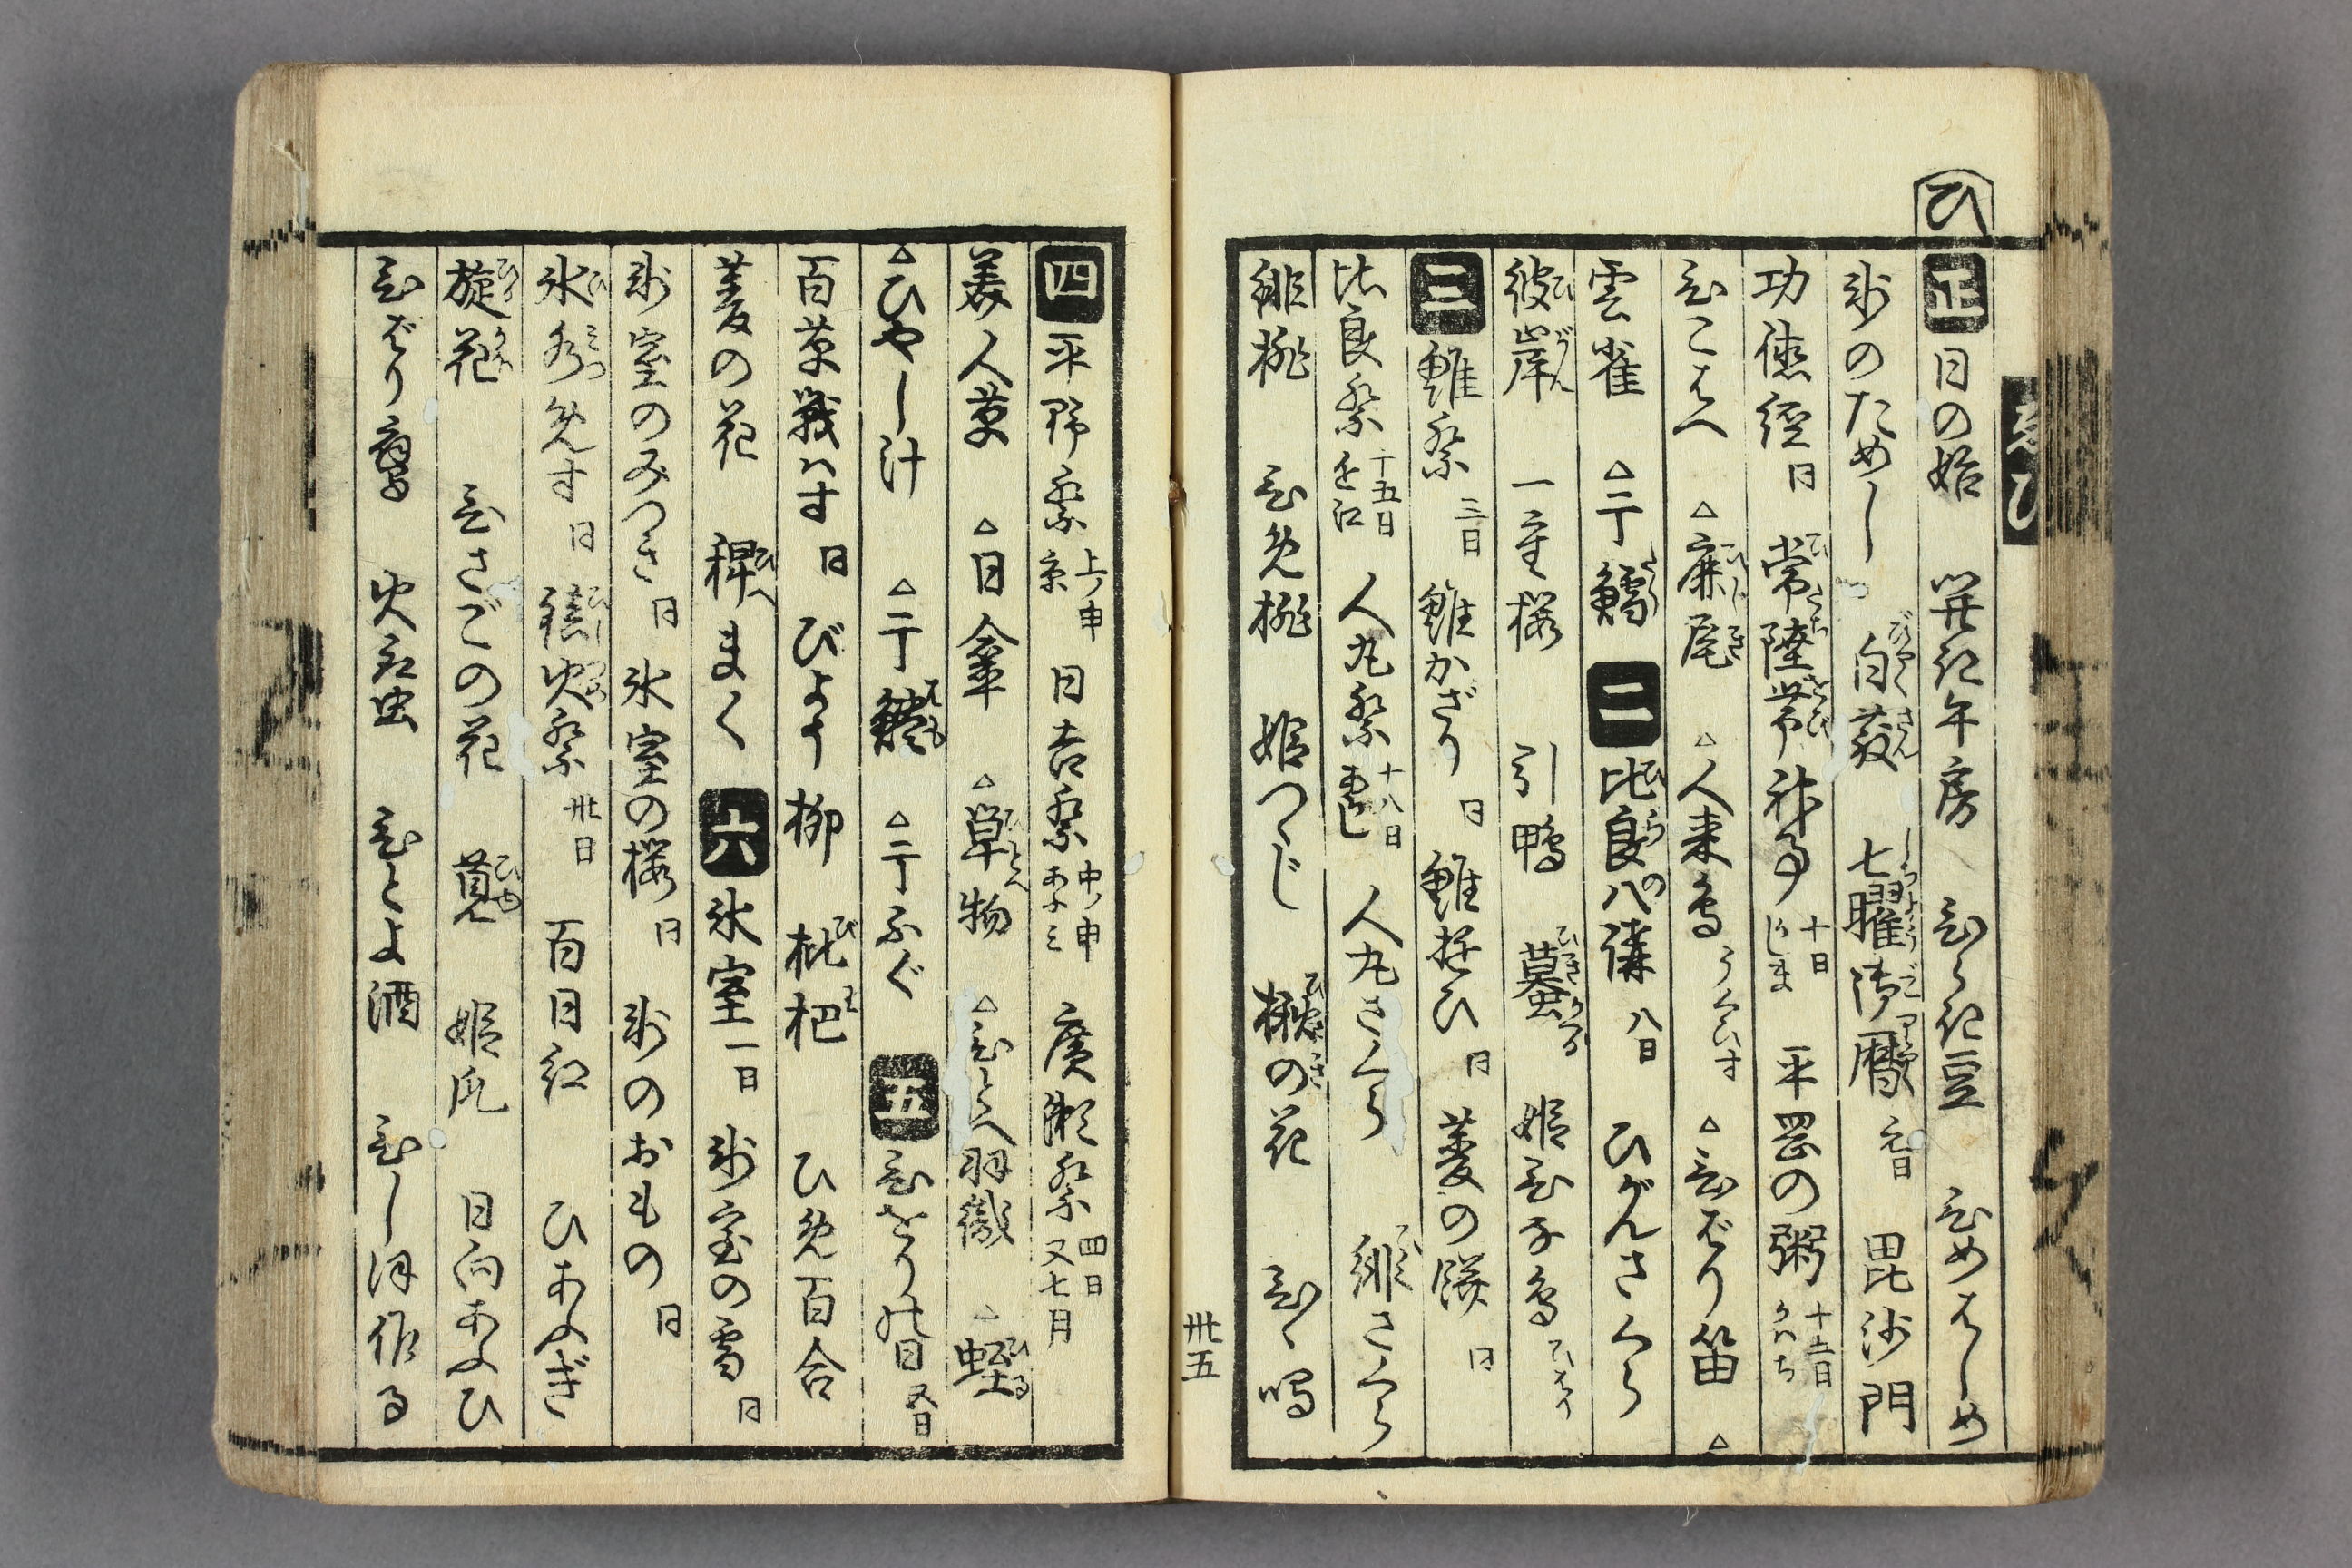 ひ
正 日の始 ひらき豆 ひめはじめ
氷のためし 白散 七曜御暦 元日 毘沙門
功徳経 日 常陸帯神事 十日 かしま 平岡の粥 十五日 かハち
ひこばへ △鹿尾 △人来鳥 うぐひす △ひばり笛 △
雲雀 △干鱈 二 比良の八講 八日 ひがんさくら
彼岸 一重桜 引鴨 蟇 姫ひな鳥 ひはり
三 雛祭 三日 雛かざり 日 雛遊ひ 日 菱の餅 日
比良祭 十五日 近江 人丸祭 十八日 人丸さくら 緋さくら
緋桃 ひめ桃 姫つゝじ 楸の花
卅五
四 平野祭 上ノ申 京 日吉祭 中ノ申 あふミ 廣瀬祭 四日 又七月
美人草 △日傘 △単物 △ひとへ羽織 △蛭
△ひやし汁 △干鱧 △干ふぐ 五
百草戦はす 日 びよう柳 枇杷 ひめ百合
菱の花 稗まく 六 氷室 一日 氷室の雪 日
氷室のみつき 日 氷室の桜 日 氷のおもの 日
氷水めす 日 火祭 卅日 百日紅 ひあふぎ
旋花 ひさごの花 莧 姫瓜 日向あふひ
火取虫 ひとよ酒 ひしほ作る